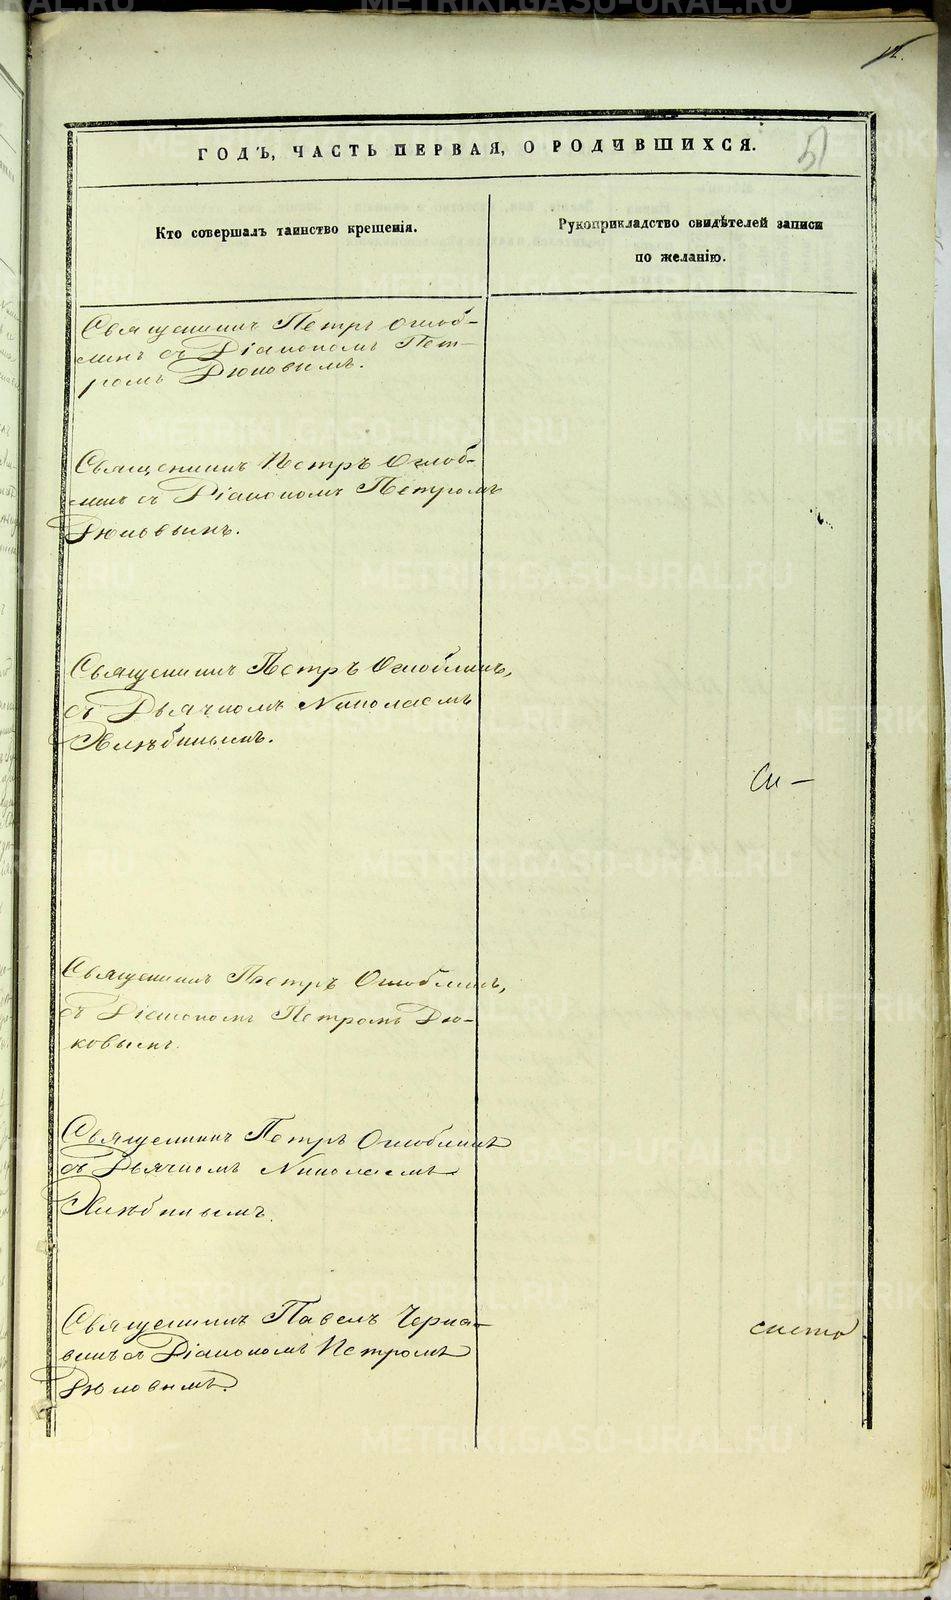 12.
ГОДЪ, ЧАСТЬ ПЕРВАЯ, О РОДИВШИХСЯ.
51
Кто совершалъ таинство крещенія.
Рукоприкладство свидѣтелей записи
по желанію.
Священникъ Петръ Оглоб-
линъ съ Діакономъ Пет-
ромъ Дюковымъ.
Священникъ Петръ Оглоб-
линъ съ Діакономъ Петромъ
Дюковымъ.
Священникъ Петръ Оглоблинъ,
съ Дьячкомъ Николаемъ
Хлѣбинымъ.
Священникъ Петръ Оглоблинъ,
съ Діакономъ Петромъ Дю-
ковымъ.
Священникъ Петръ Оглоблинъ
съ Дьячкомъ Николаемъ
Хлѣбинымъ.
Священникъ Павелъ Черна-
винъ съ Діакономъ Петромъ
Дюковымъ.
METRIKI.GASO-URAL.RU